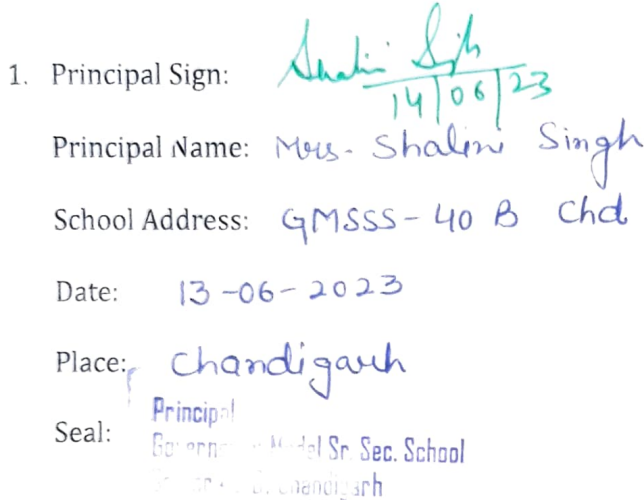 1. Principal Sign: Shalini Singh
14/06/23
Principal Name: Mrs. Shalini Singh
School Address: GMSSS-40 B Chd
Date: 13-06-2023
Place: Chandigarh
Seal: Principal
Model Sr. Sec. School
Chandigarh